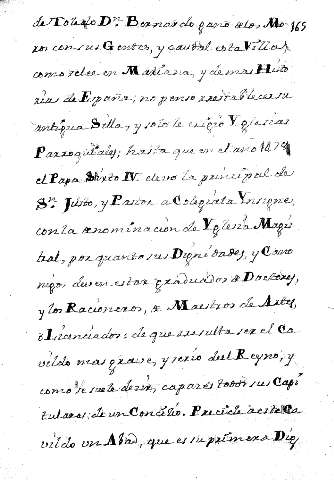 de Toledo Dn. Bernardo ganó a los Mo- 165
ros con sus Gentes, y caudal esta Villa,
como se lee en Mariana, y demas Histo
rias de España; no penso restablecer su
antigua Silla, y solo le erigió Yglesias
Parroquiales; hasta que en el año 1479
el Papa Sixto IV. elevo la principal de
Sn. Justo, y Pastor a Colegiata Ynsigne,
con la denominacion de Yglesia Magis
tral, por quanto sus Dignidades, y Cano
nigos deven estar graduados de Doctores,
y los Racioneros, de Maestros de Artes,
o Licenciados: de que resulta ser el Ca
vildo mas grave, y serio del Reyno, y
como se suele decir, capaces todos sus Capi
tulares, de un Concilio. Precide a este Ca
vildo un Abad, que es su primera Dig